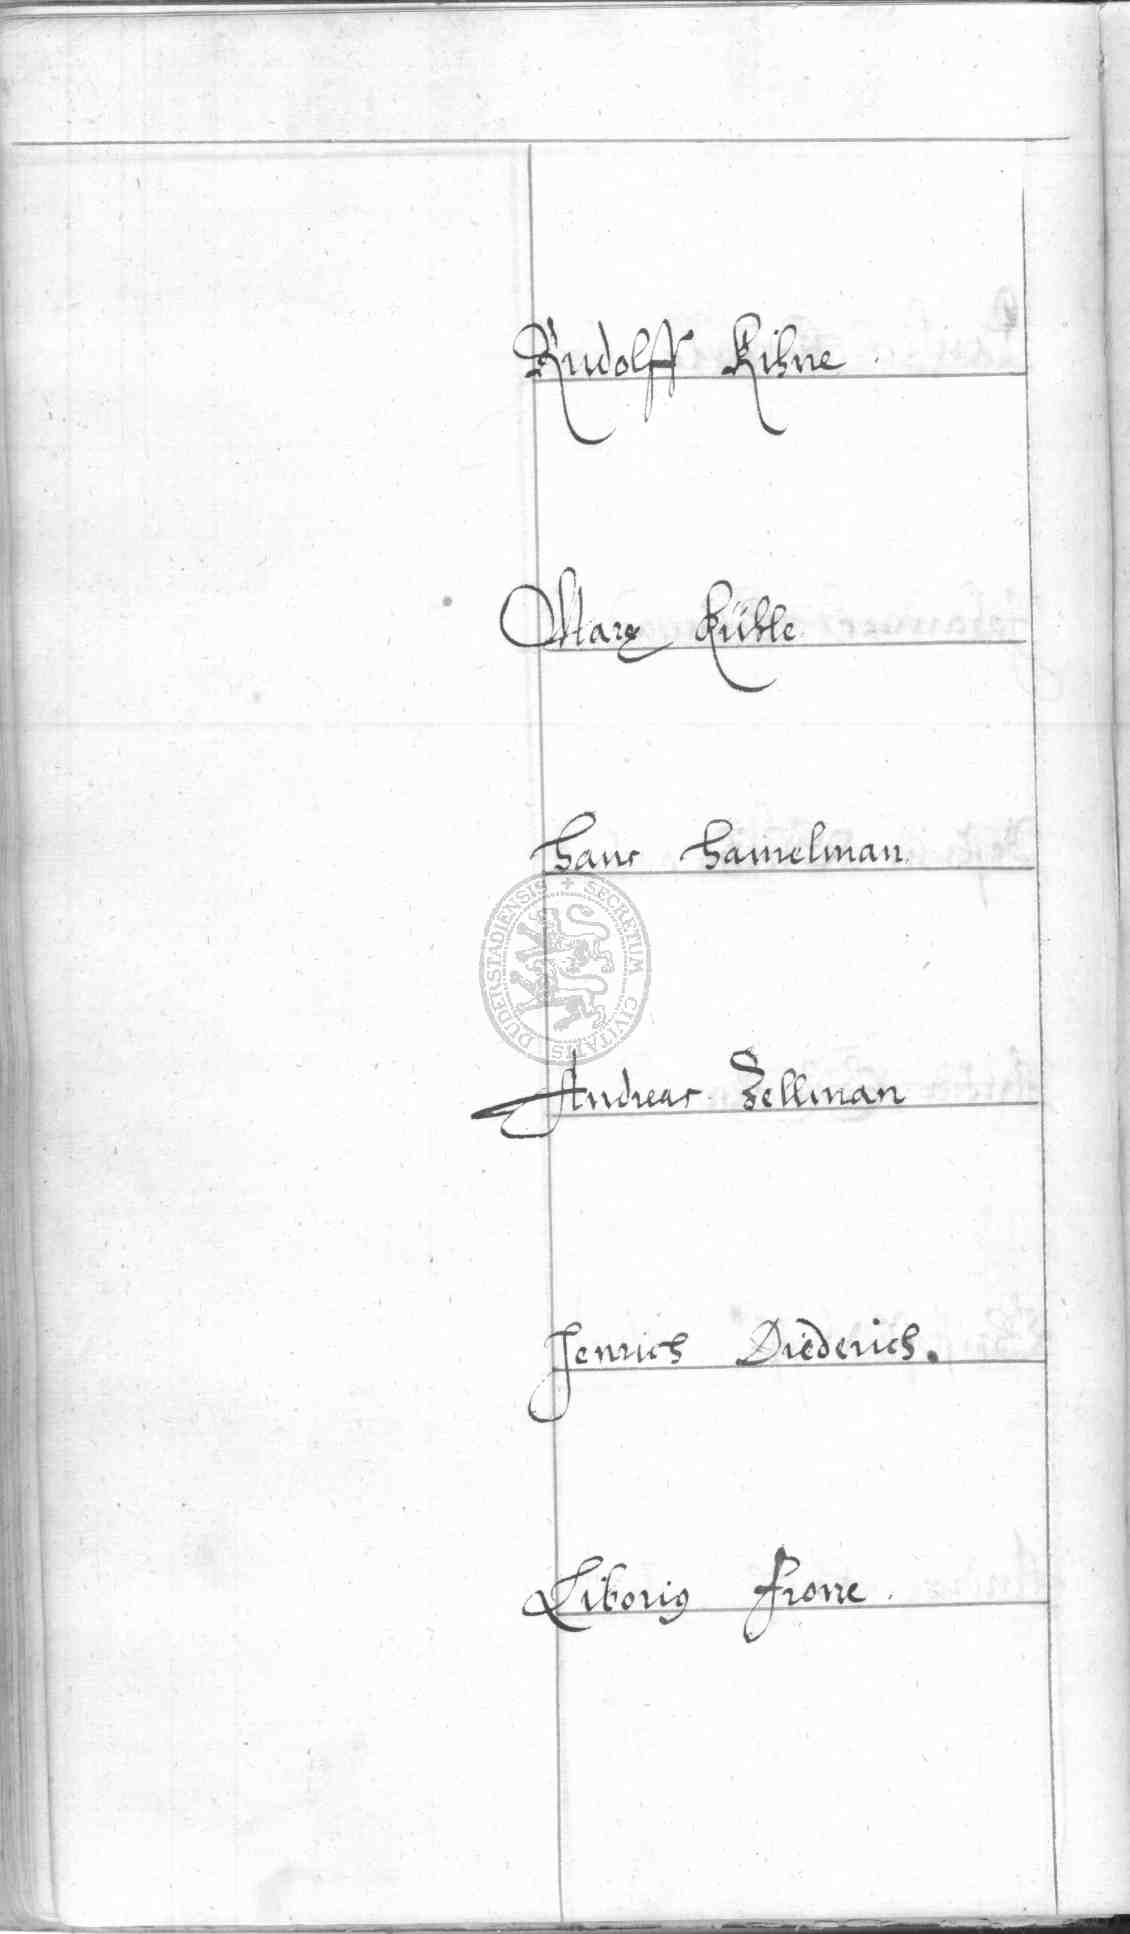 Rudolff Kihne.
Marx Kühle.
Hans Hamelman.
SECRETUM CIVITATIS DUDERSTADIENSIS
Andreas Zellman
Henrich Diederich.
Liborius Frone.